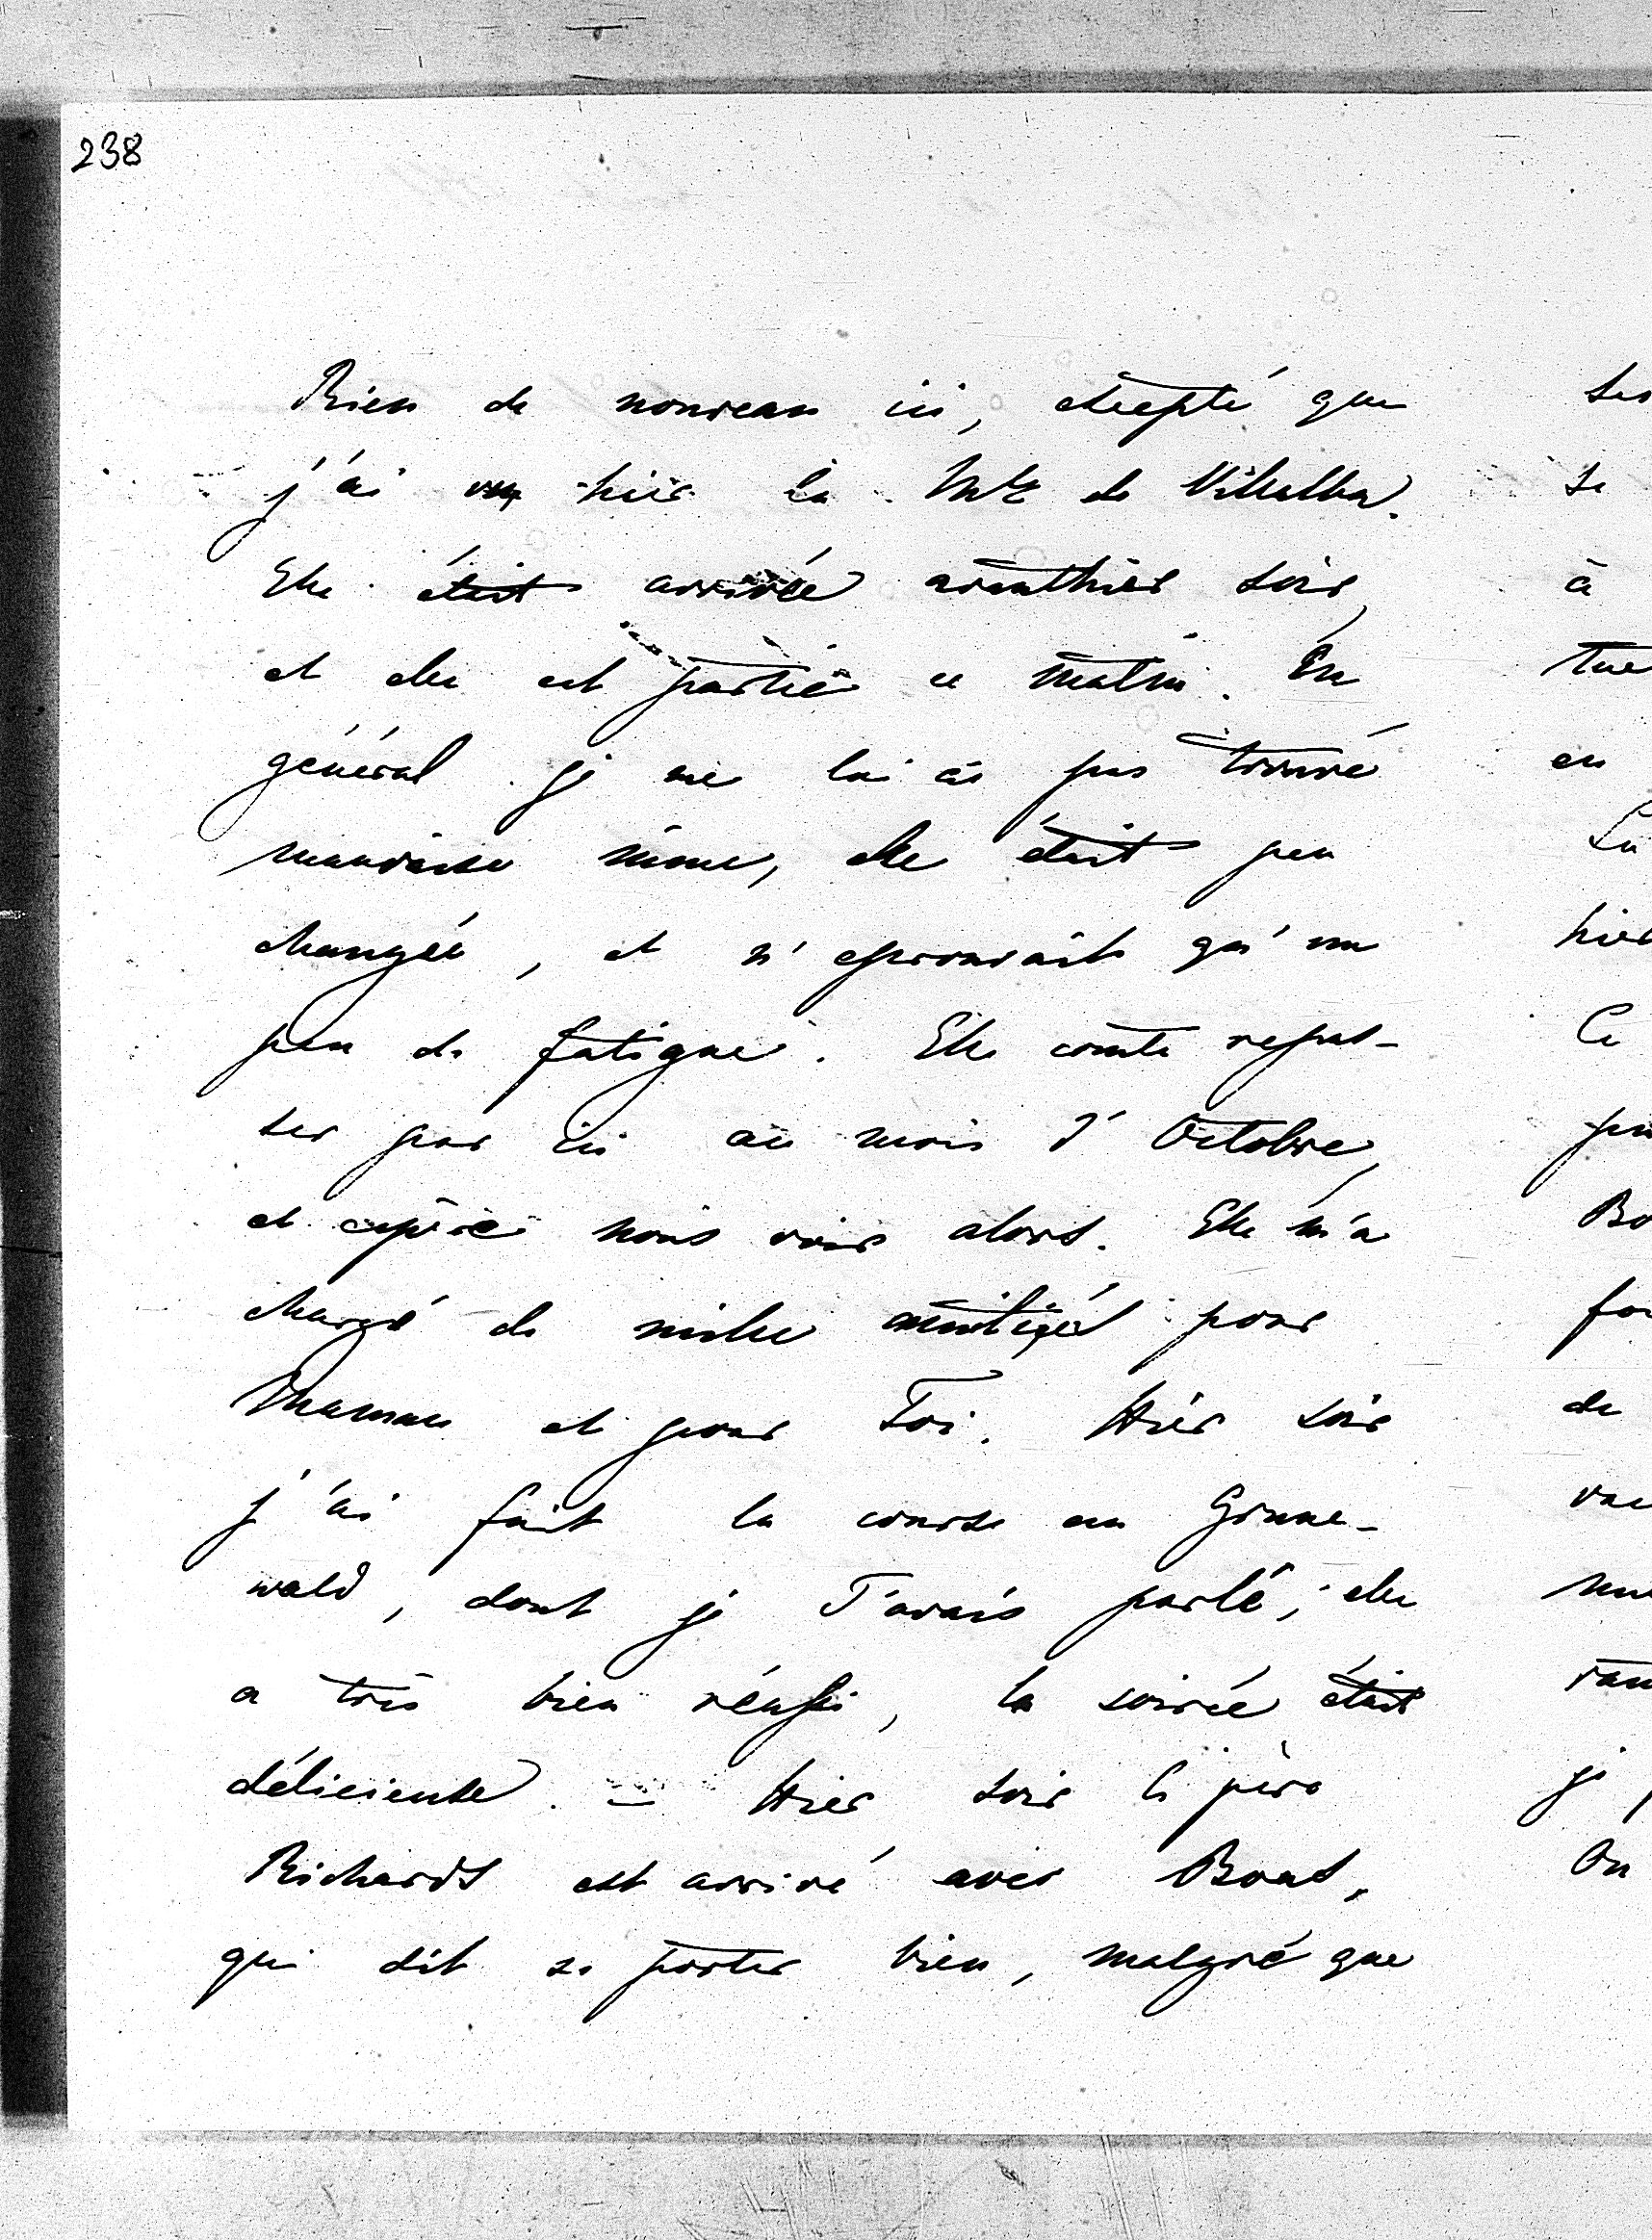 238
Rien de nouveau ici, excepté que
j'ai vu hier la Mse de Villalba.
Elle était arrivée avanthier soir,
et elle est partie ce matin. En
général je ne lui ai pas trouvé
mauvaise mine, elle était peu
changée, et n'eprouvait qu'un
peu de fatigue. Elle comte repas-
ser par ici au mois d'Octobre,
et espère nous voir alors. Elle m'a
chargé de mille amitiés pour
Maman et pour Toi. Hier soir
j'ai fait la course au Grune-
wald, dont je T'avais parlé; elle
a très bien réussi, la soirée était
délicieuse. — Hier soir le père
Richards est arrivé avec
qui dit se porter bien, malgré que
se
à
en
La
hier
Ce
de
je
On